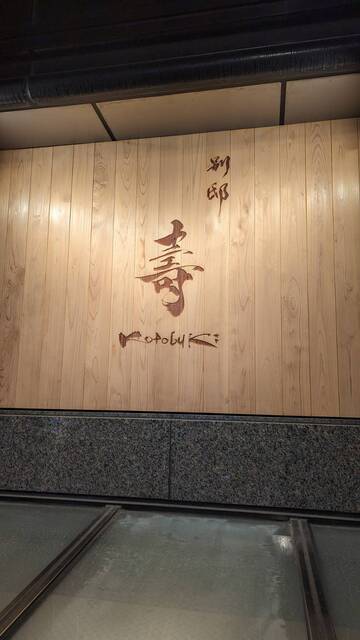 別邸
寿
Kotobuki